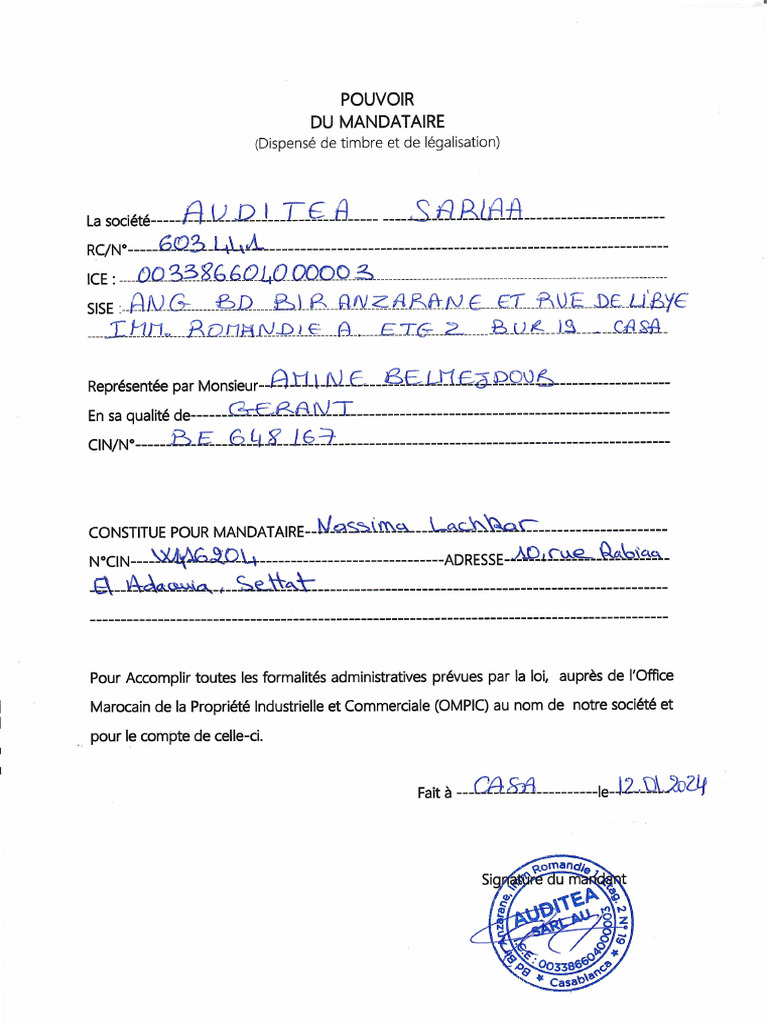 POUVOIR
DU MANDATAIRE
(Dispensé de timbre et de légalisation)
La société AUDITEA SARLAA
RC/N° 603441
ICE : 003386604000003
SISE : ANG BD BIR ANZARANE ET RUE DE LIBYE
IMM. ROMANDIE A ETG 2 BUR 19 . CASA
Représentée par Monsieur AMINE BELMEJDOUB
En sa qualité de GERANT
CIN/N° BE 648167
CONSTITUE POUR MANDATAIRE Nassima Lachkar
N°CIN ADRESSE 10, rue Rabiaa
El Adaouia, Settat
Pour Accomplir toutes les formalités administratives prévues par la loi, auprès de l'Office
Marocain de la Propriété Industrielle et Commerciale (OMPIC) au nom de notre société et
pour le compte de celle-ci.
Fait à CASA le 12.01.2024
Signature du mandant
Bd Bir Anzarane, Imm Romandie Etag. 2 N° 19
AUDITEA
SARL AU
I.C.E : 003386604000003
★ Casablanca ★